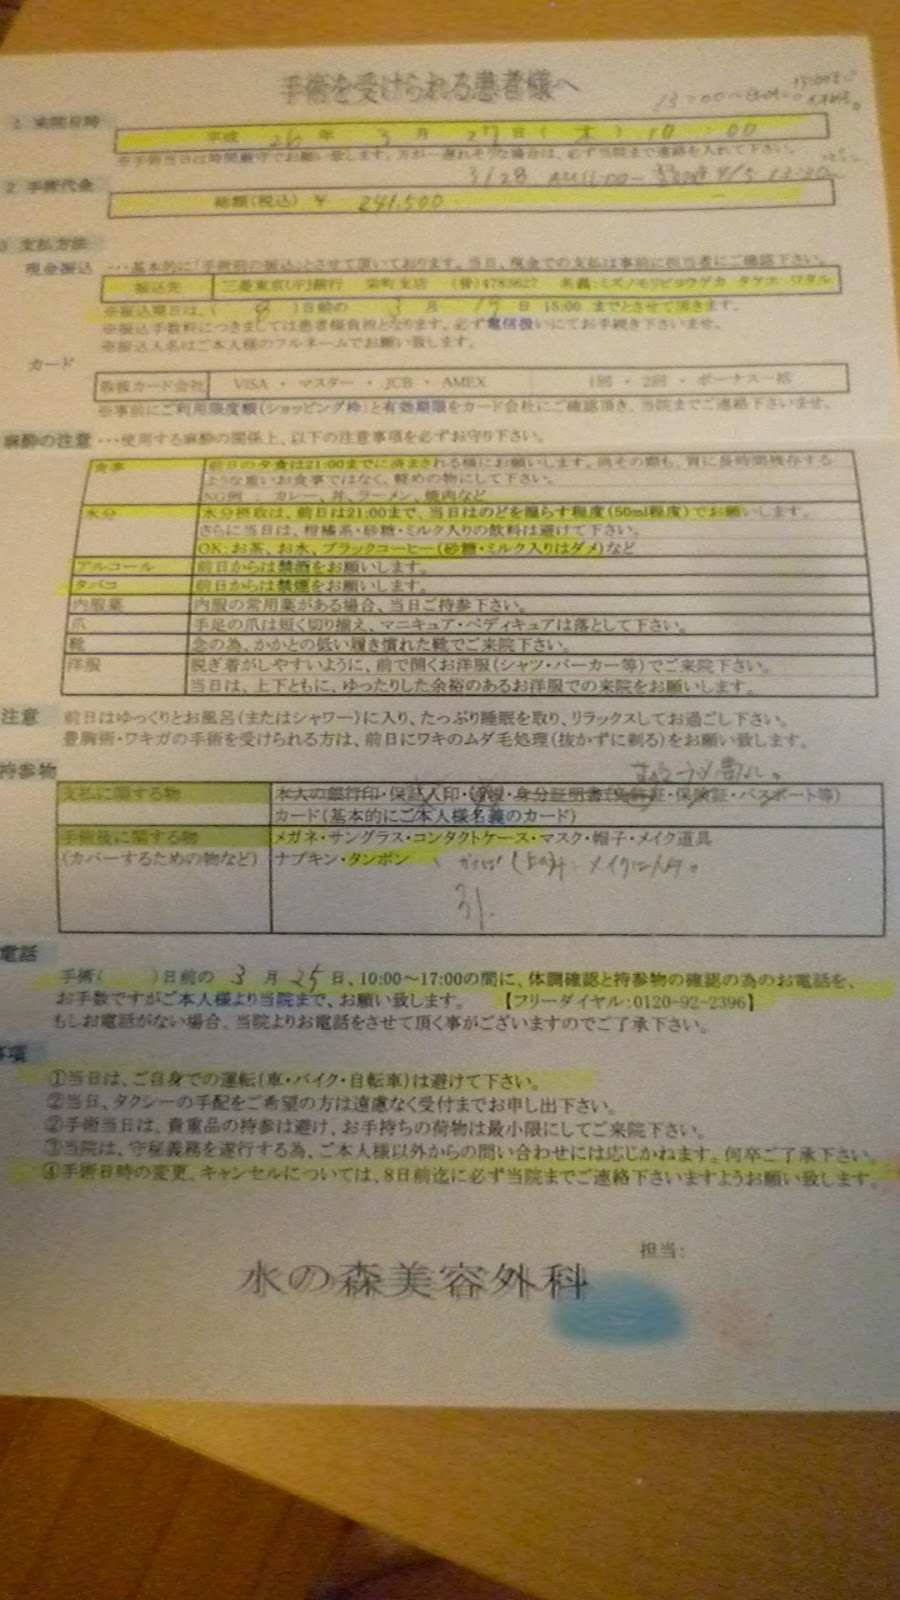 手術を受けられる患者様へ
1 来院日時
平成 26 年 3 月 27 日 ( 木 ) 10 : 00
※手術当日は時間厳守でお願い致します。万が一遅れそうな場合は、必ず当院まで連絡を入れて下さい。
3/28 AM11:00～ 4/5 13:30
2 手術代金
総額(税込) ¥ 241,500
3 支払方法
現金振込 …基本的に「手術前の振込」とさせて頂いております。当日、現金での支払は事前に担当者にご確認下さい。
振込先 三菱東京UFJ銀行 栄町支店 (普)4783627 名義:ミズノモリビヨウゲカ タケエ ワタル
※振込期日は、( 8 )日前の 3 月 19 日 15:00 までとさせて頂きます。
※振込手数料につきましては患者様負担となります。必ず電信扱いにてお手続き下さいませ。
※振込人名はご本人様のフルネームでお願い致します。
カード
取扱カード会社 VISA ・ マスター ・ JCB ・ AMEX 1回 ・ 2回 ・ ボーナス一括
※事前にご利用限度額(ショッピング枠)と有効期限をカード会社にご確認頂き、当院までご連絡下さいませ。
麻酔の注意 …使用する麻酔の関係上、以下の注意事項を必ずお守り下さい。
食事 前日の夕食は21:00までに済まされる様にお願いします。尚その際も、胃に長時間残存する
ような重いお食事ではなく、軽めの物にして下さい。
NG例 : カレー、丼、ラーメン、焼肉など
水分 水分摂取は、前日は21:00まで、当日はのどを湿らす程度(50ml程度)でお願いします。
さらに当日は、柑橘系・砂糖・ミルク入りの飲料は避けて下さい。
OK:お茶、お水、ブラックコーヒー(砂糖・ミルク入りはダメ)など
アルコール 前日からは禁酒をお願いします。
タバコ 前日からは禁煙をお願いします。
内服薬 内服の常用薬がある場合、当日ご持参下さい。
爪 手足の爪は短く切り揃え、マニキュア・ペディキュアは落として下さい。
靴 念の為、かかとの低い履き慣れた靴でご来院下さい。
洋服 脱ぎ着がしやすいように、前で開くお洋服(シャツ・パーカー等)でご来院下さい。
当日は、上下ともに、ゆったりした余裕のあるお洋服での来院をお願いします。
注意 前日はゆっくりとお風呂(またはシャワー)に入り、たっぷり睡眠を取り、リラックスしてお過ごし下さい。
豊胸術・ワキガの手術を受けられる方は、前日にワキのムダ毛処理(抜かずに剃る)をお願い致します。
持参物
支払に関する物 本人の銀行印・保証人印・通帳・身分証明書(免許証・保険証・パスポート等)
カード(基本的にご本人様名義のカード)
手術後に関する物 メガネ・サングラス・コンタクトケース・マスク・帽子・メイク道具
(カバーするための物など) ナプキン・タンポン
電話
手術( )日前の 3 月 25 日、10:00～17:00の間に、体調確認と持参物の確認の為のお電話を、
お手数ですがご本人様より当院まで、お願い致します。 【フリーダイヤル:0120-92-2396】
もしお電話がない場合、当院よりお電話をさせて頂く事がございますのでご了承下さい。
事項
①当日は、ご自身での運転(車・バイク・自転車)は避けて下さい。
②当日、タクシーの手配をご希望の方は遠慮なく受付までお申し出下さい。
②手術当日は、貴重品の持参は避け、お手持ちの荷物は最小限にしてご来院下さい。
③当院は、守秘義務を遂行する為、ご本人様以外からの問い合わせには応じかねます。何卒ご了承下さい。
④手術日時の変更、キャンセルについては、8日前迄に必ず当院までご連絡下さいますようお願い致します。
担当:
水の森美容外科